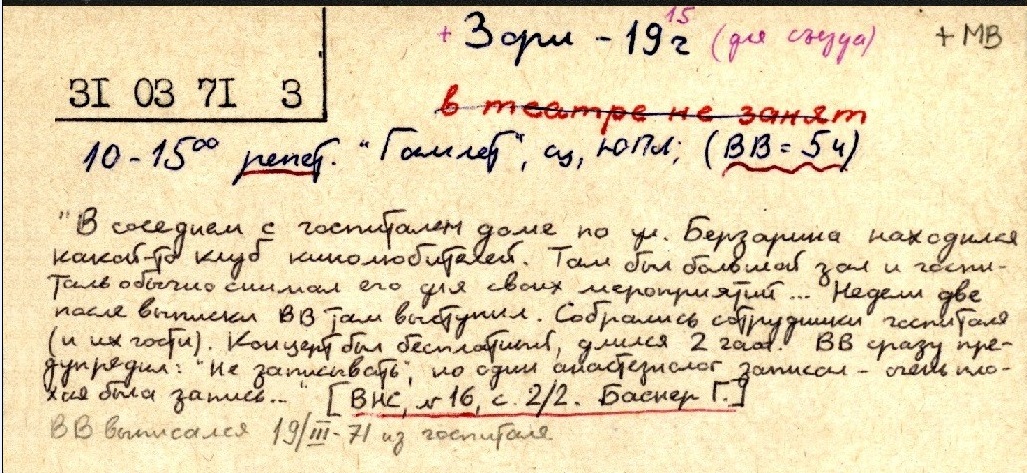 + Зори - 19 15 (для съезда) + МВ
31 03 71 3
в театре не занят
10-15⁰⁰ репет. "Гамлет", сц, ЮПЛ; (ВВ = 5 ч)
"В соседнем с госпиталем доме по ул. Берзарина находился
какой-то клуб кинолюбителей. Там был большой зал и госпи-
таль обычно снимал его для своих мероприятий... Недели две
после выписки ВВ там выступил. Собрались сотрудники госпиталя
(и их гости). Концерт был бесплатный, длился 2 часа. ВВ сразу пре-
дупредил: "Не записывать", но один анастезиолог записал - очень пло-
хая была запись..." [ВНС, № 16, с. 2/2. Баскер Г.]
ВВ выписался 19/III-71 из госпиталя